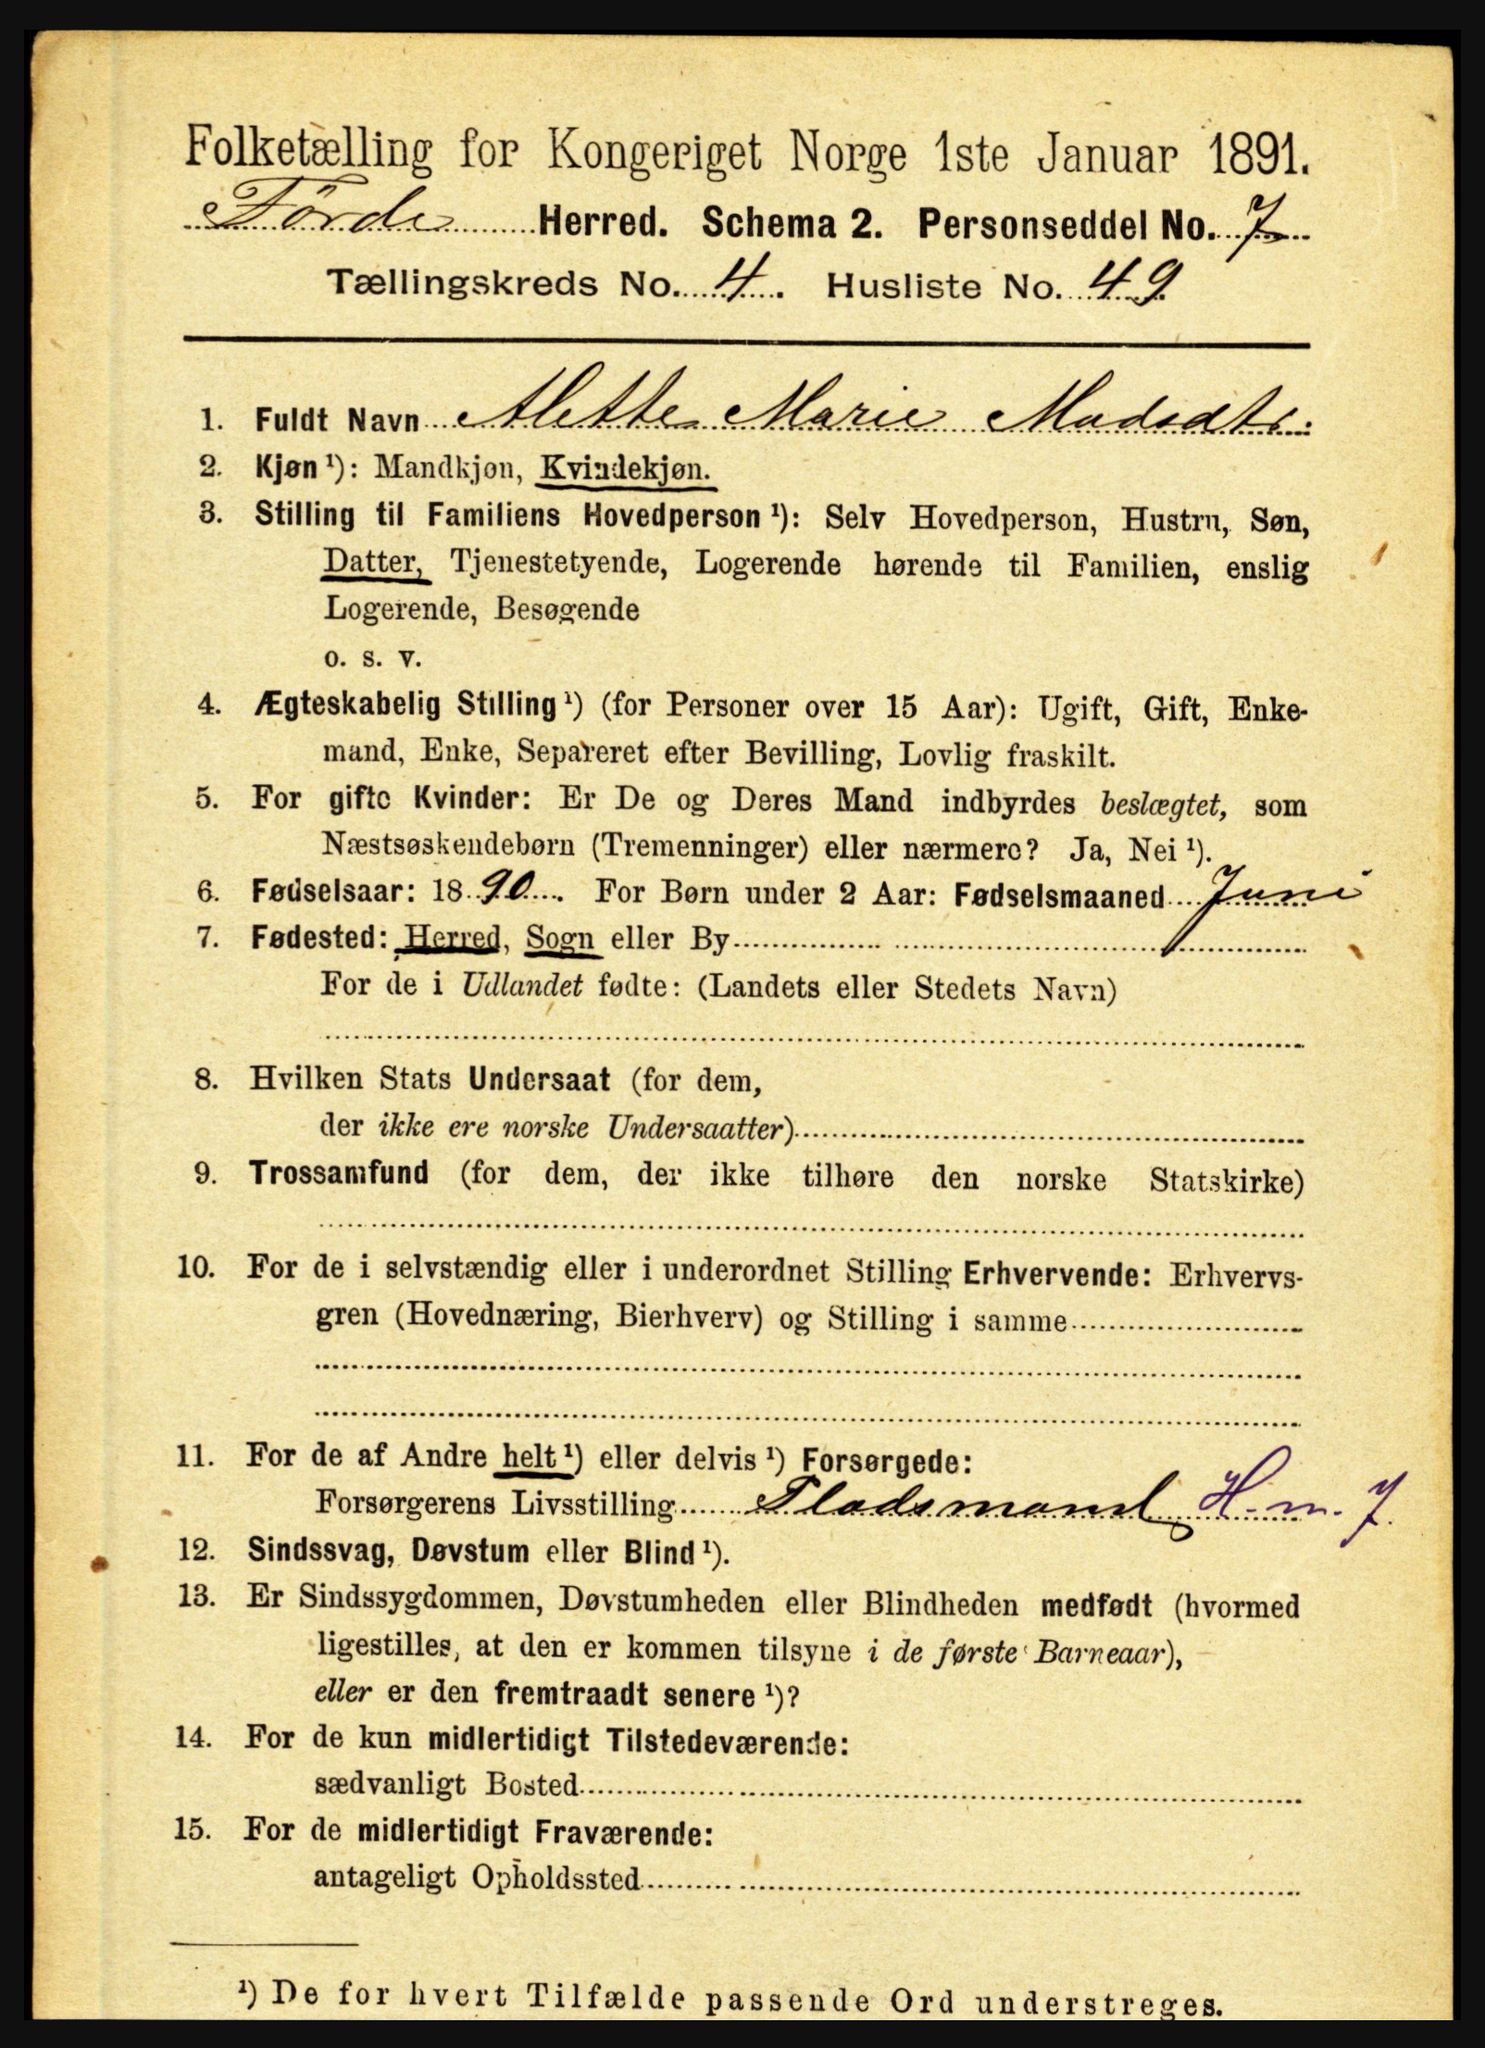 Folketælling for Kongeriget Norge 1ste Januar 1891.
Förde Herred. Schema 2. Personseddel No. 7
Tællingskreds No. 4. Husliste No. 49.
1. Fuldt Navn Alette Marie Madsdtr.
2. Kjøn ¹): Mandkjøn, Kvindekjøn.
3. Stilling til Familiens Hovedperson ¹): Selv Hovedperson, Hustru, Søn,
Datter, Tjenestetyende, Logerende hørende til Familien, enslig
Logerende, Besøgende
o. s. v.
4. Ægteskabelig Stilling ¹) (for Personer over 15 Aar): Ugift, Gift, Enke-
mand, Enke, Separeret efter Bevilling, Lovlig fraskilt.
5. For gifte Kvinder: Er De og Deres Mand indbyrdes beslægtet, som
Næstsøskendebørn (Tremenninger) eller nærmere? Ja, Nei ¹).
6. Fødselsaar: 1890. For Børn under 2 Aar: Fødselsmaaned Juni
7. Fødested: Herred, Sogn eller By
For de i Udlandet fødte: (Landets eller Stedets Navn)
8. Hvilken Stats Undersaat (for dem,
der ikke ere norske Undersaatter)
9. Trossamfund (for dem, der ikke tilhøre den norske Statskirke)
10. For de i selvstændig eller i underordnet Stilling Erhvervende: Erhvervs-
gren (Hovednæring, Bierhverv) og Stilling i samme
11. For de af Andre helt ¹) eller delvis ¹) Forsørgede:
Forsørgerens Livsstilling Pladsmand H. m. J.
12. Sindssvag, Døvstum eller Blind ¹).
13. Er Sindssygdommen, Døvstumheden eller Blindheden medfødt (hvormed
ligestilles, at den er kommen tilsyne i de første Barneaar),
eller er den fremtraadt senere ¹)?
14. For de kun midlertidigt Tilstedeværende:
sædvanligt Bosted
15. For de midlertidigt Fraværende:
antageligt Opholdssted
¹) De for hvert Tilfælde passende Ord understreges.